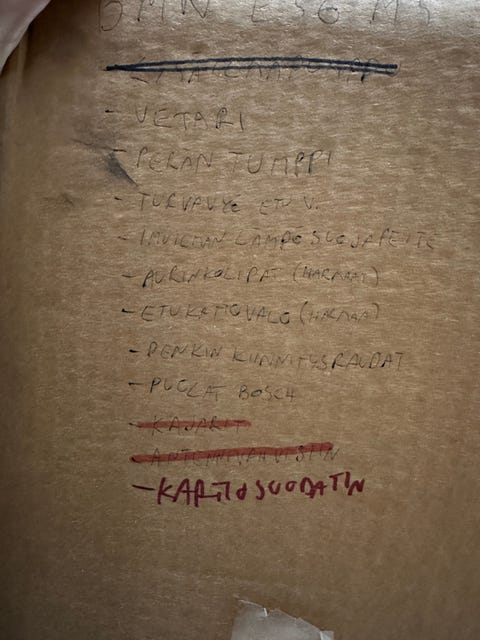 BMW E36 M3
- VETARI
- PERÄN TUMPPI
- TURVAVYÖ ETU V.
- IMUILMAN LÄMPÖSUOJAPEITE
- AURINKOLIPAT (HARMAAT)
- ETUKATTOVALO (HARMAA)
- PENKIN KIINNITYSRAUDAT
- PUOLAT BOSCH
- KAJARIT
- ANTENNIVAHVISTIN
- KARTIOSUODATIN